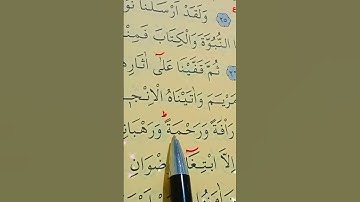 ٢٥ وَلَقَدْ اَرْسَلْنَا نُو
النُّبُوَّةَ وَالْكِتَابَ فَمِنْ
ثُمَّ قَفَّيْنَا عَلٰٓى اٰثَارِ
مَرْيَمَ وَاٰتَيْنَاهُ الْاِنْج
رَاْفَةً وَرَحْمَةًۜ وَرَهْبَانِ
اِلَّا ابْتِغَٓاءَ رِضْوَانِ